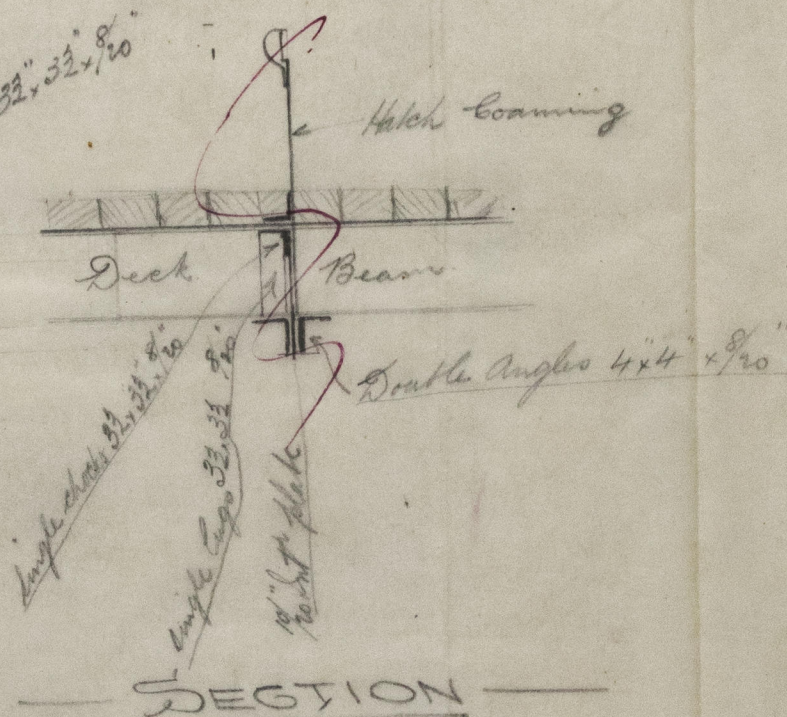 3½" x 3½" x 8/20"
Hatch Coaming
Deck Beam
Double Angles 4" x 4" x 8/20"
Single chocks 3½" x 3½" x 8/20"
Single Lugs 3½ x 3½ 8/20"
10/20" Int plate
SECTION